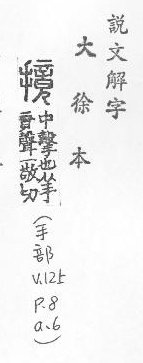 說文解字
大徐本
摬
中擊也从手
竟聲一敬切
(手部
V.125
P.8
a.6)